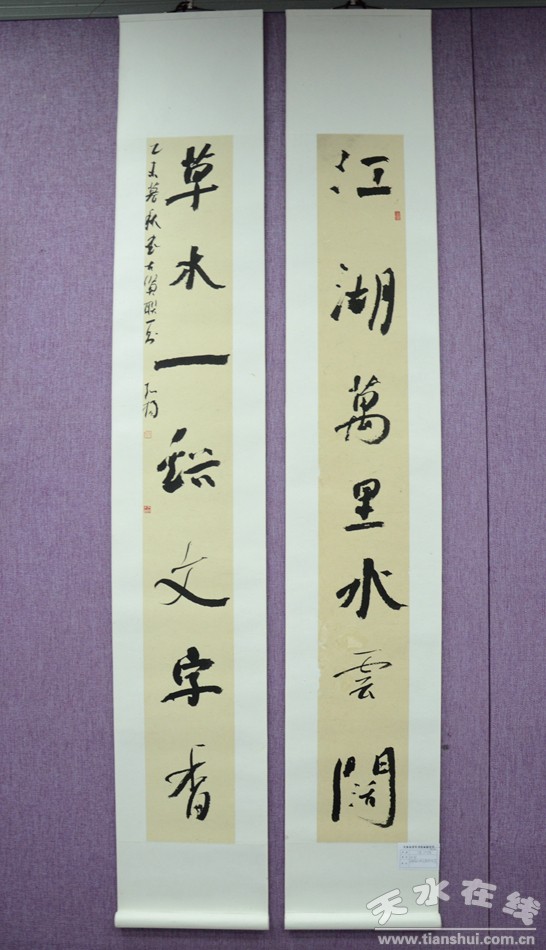 江湖萬里水雲闊
草木一谿文字香
乙未暮秋書古賢聯一
天水在线
www.tianshui.com.cn